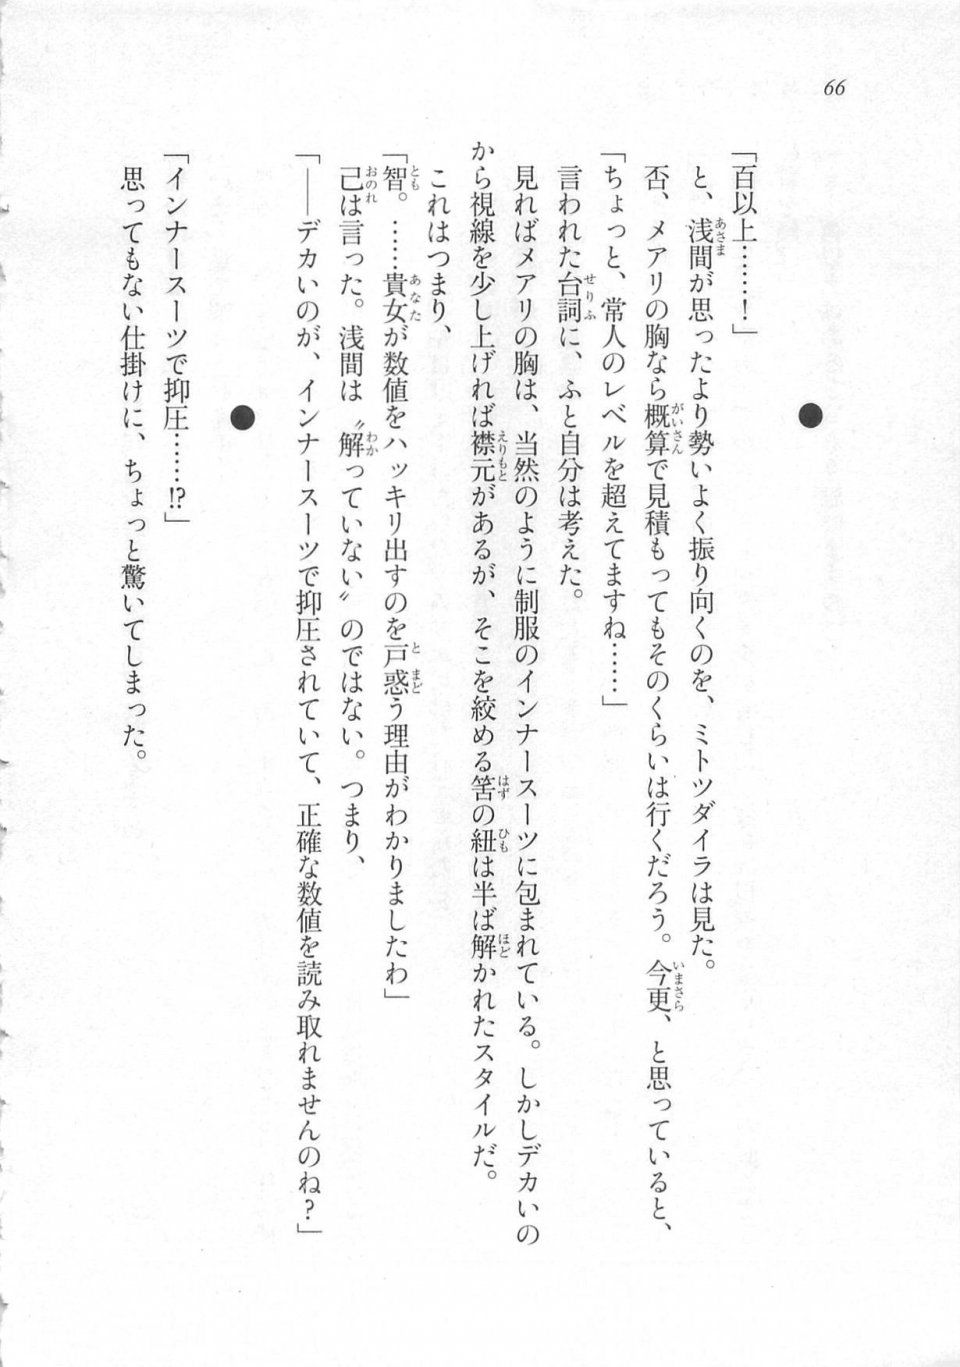 66
●
「百以上……！」
と、浅間が思ったより勢いよく振り向くのを、ミトツダイラは見た。
否、メアリの胸なら概算で見積もってもそのくらいは行くだろう。今更、と思っていると、
「ちょっと、常人のレベルを超えてますね……」
言われた台詞に、ふと自分は考えた。
見ればメアリの胸は、当然のように制服のインナースーツに包まれている。しかしデカいの
から視線を少し上げれば襟元があるが、そこを絞める筈の紐は半ば解かれたスタイルだ。
これはつまり、
「智。……貴女が数値をハッキリ出すのを戸惑う理由がわかりましたわ」
己は言った。浅間は〝解っていない〟のではない。つまり、
「――デカいのが、インナースーツで抑圧されていて、正確な数値を読み取れませんのね？」
●
「インナースーツで抑圧……⁉」
思ってもない仕掛けに、ちょっと驚いてしまった。